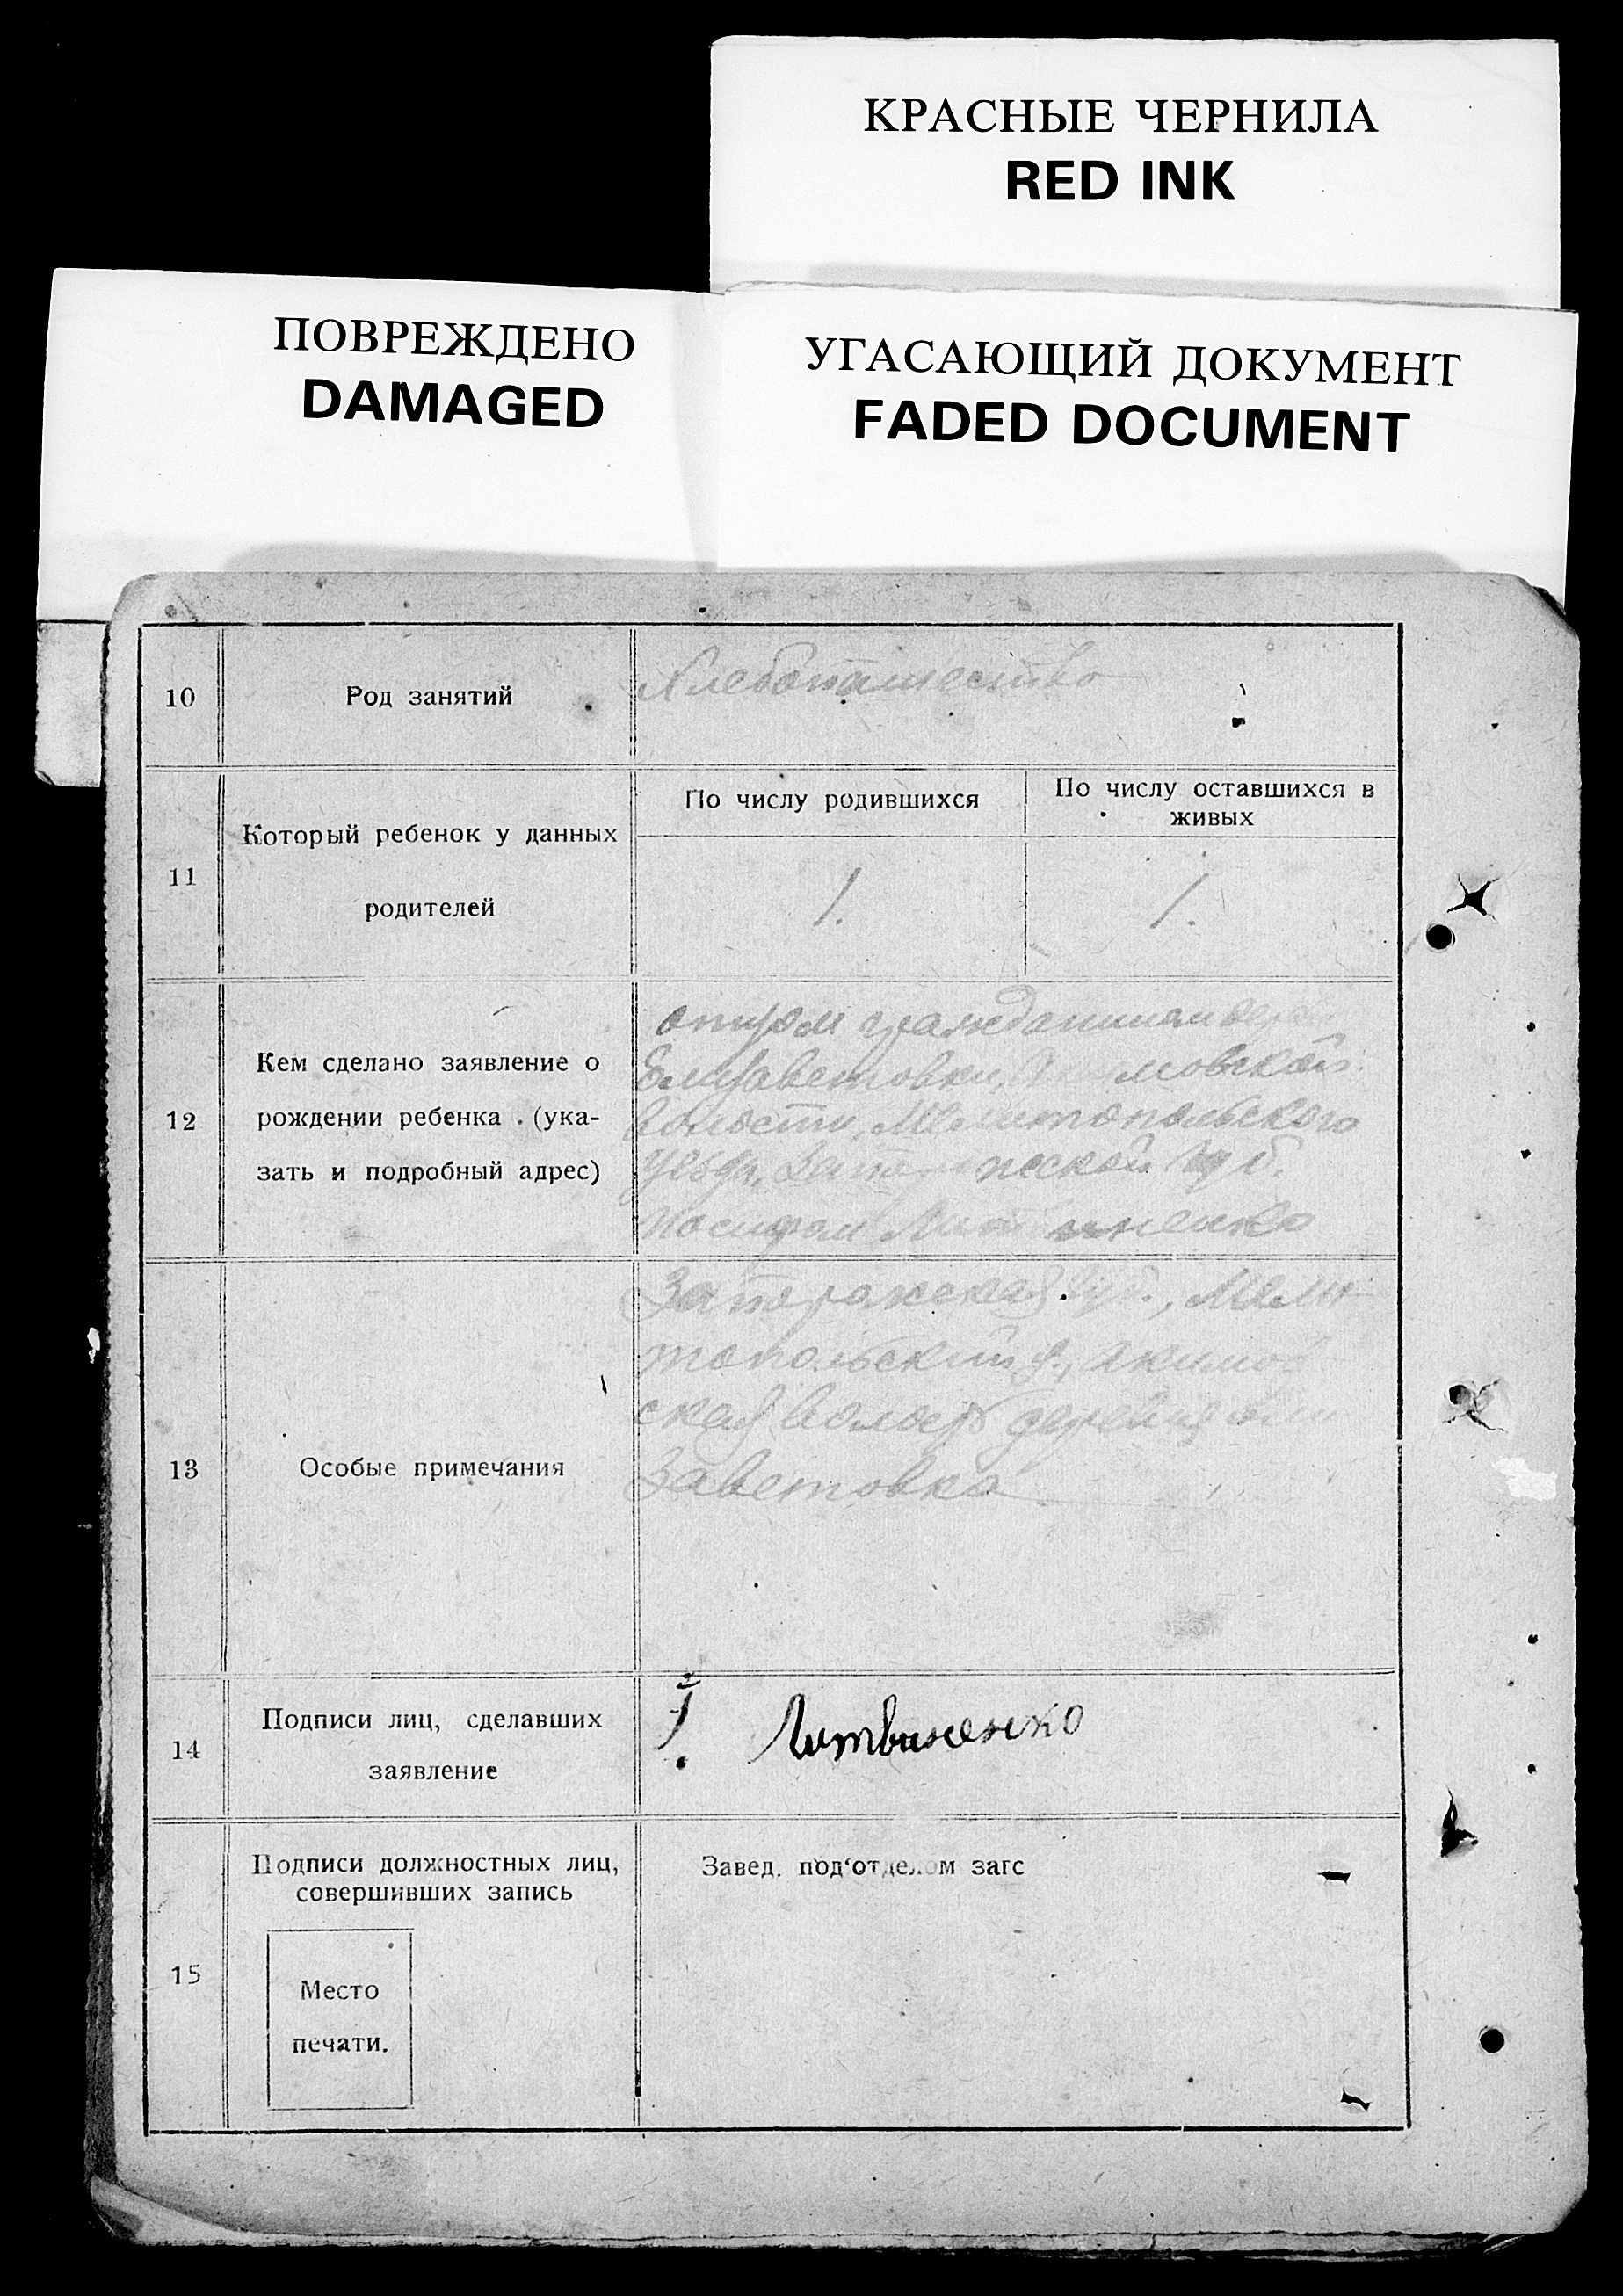 КРАСНЫЕ ЧЕРНИЛА
RED INK
ПОВРЕЖДЕНО
DAMAGED
УГАСАЮЩИЙ ДОКУМЕНТ
FADED DOCUMENT
10
Род занятий
Хлебопашество
11
Который ребенок у данных
родителей
По числу родившихся
По числу оставшихся в
живых
1.
1.
12
Кем сделано заявление о
рождении ребенка . (ука-
зать и подробный адрес)
отцом гражданином
Елизаветовки,
волости, Мелитопольского
уезда, губ.
Иосифом
13
Особые примечания
Запорожская губ., Мели-
топольский у., Акимов
ская волость деревня
заветовка
14
Подписи лиц, сделавших
заявление
Литвиненко
15
Подписи должностных лиц,
совершивших запись
Место
печати.
Завед. под‘отделом загс